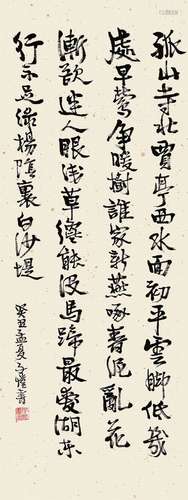 孤山寺北賈亭西水面初平雲腳低幾
處早鶯爭暖樹誰家新燕啄春泥亂花
漸欲迷人眼淺草纔能没馬蹄最愛湖東
行不足綠楊陰裏白沙堤
癸丑孟夏子愷書